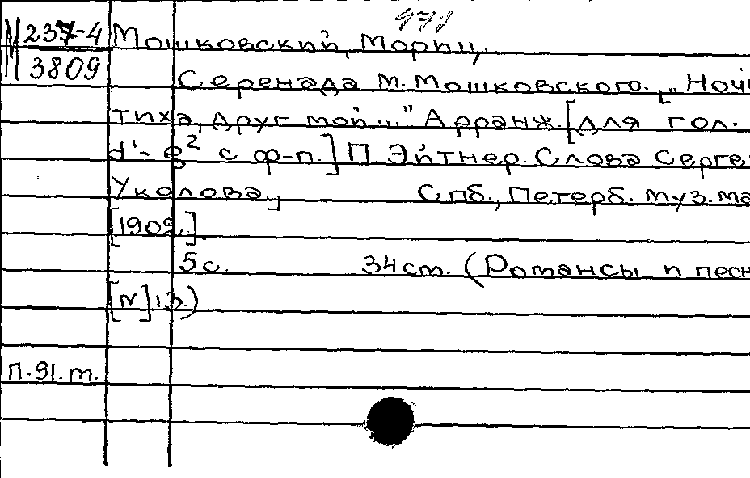 971
М 237-4
3809
Мошковский, Мориц.
Серенада М. Мошковского. [„Ночь
тиха, друг мой..." Арранж. [для гол.
d'-g² с ф-п.] П Эйтнер. Слова Серге
Уколова.] Спб., Петерб. муз. ма
[1909.]
5 с. 34 см. (Романсы и песн
[№] 13.)
П.-91.т.